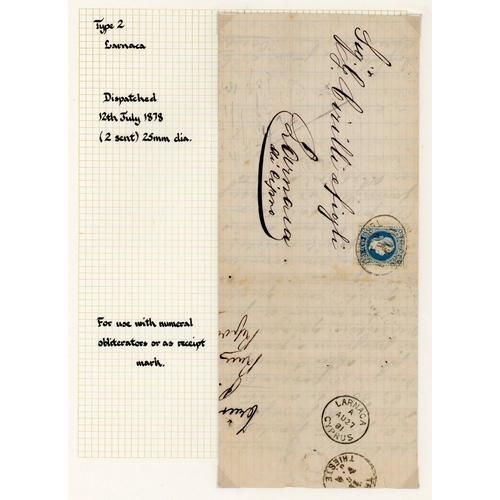 Type 2
Larnaca
Dispatched
12th July 1878
(2 sent) 25mm dia.
For use with numeral
obliterators or as receipt
mark.
Sig.ri
Cirilli e figli
Larnaca
di Cipro
LARNACA
A
AU 27
81
CYPRUS
TRIESTE